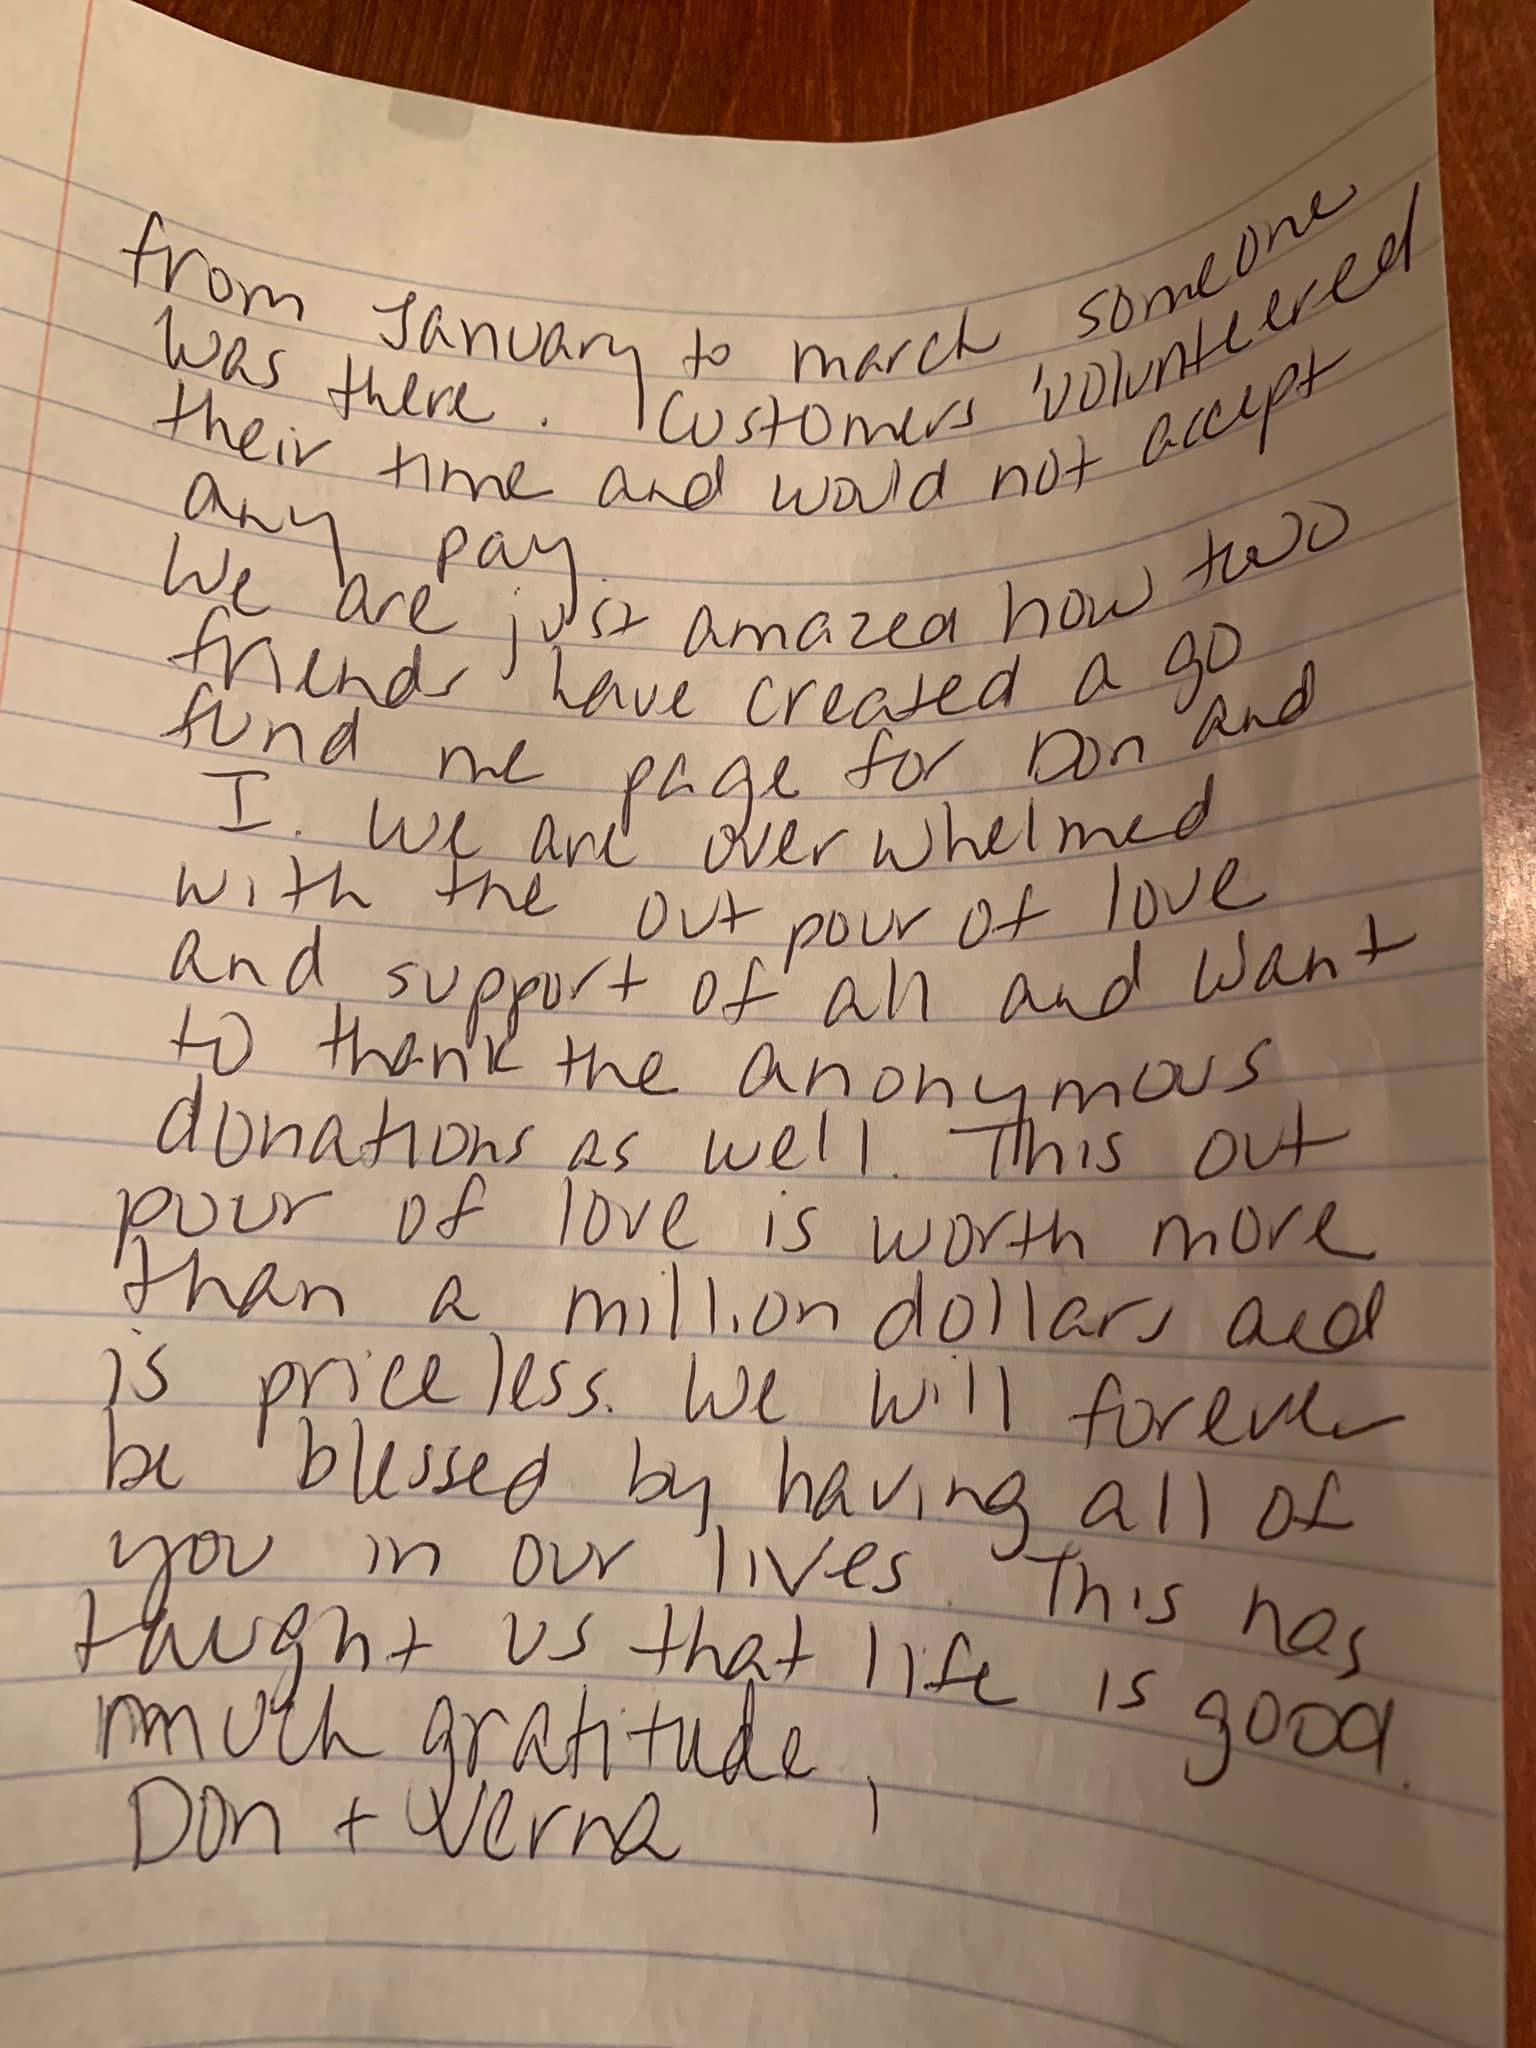 from January to march someone
was there. Customers volunteered
their time and would not accept
any pay.
We are just amazed how two
friends have created a go
fund me page for Don and
I. We are over whelmed
with the out pour of love
and support of all and want
to thank the anonymous
donations as well. This out
pour of love is worth more
than a million dollars and
is priceless. We will forever
be blessed by having all of
you in our lives. This has
taught us that life is good.
much gratitude,
Don + Verna